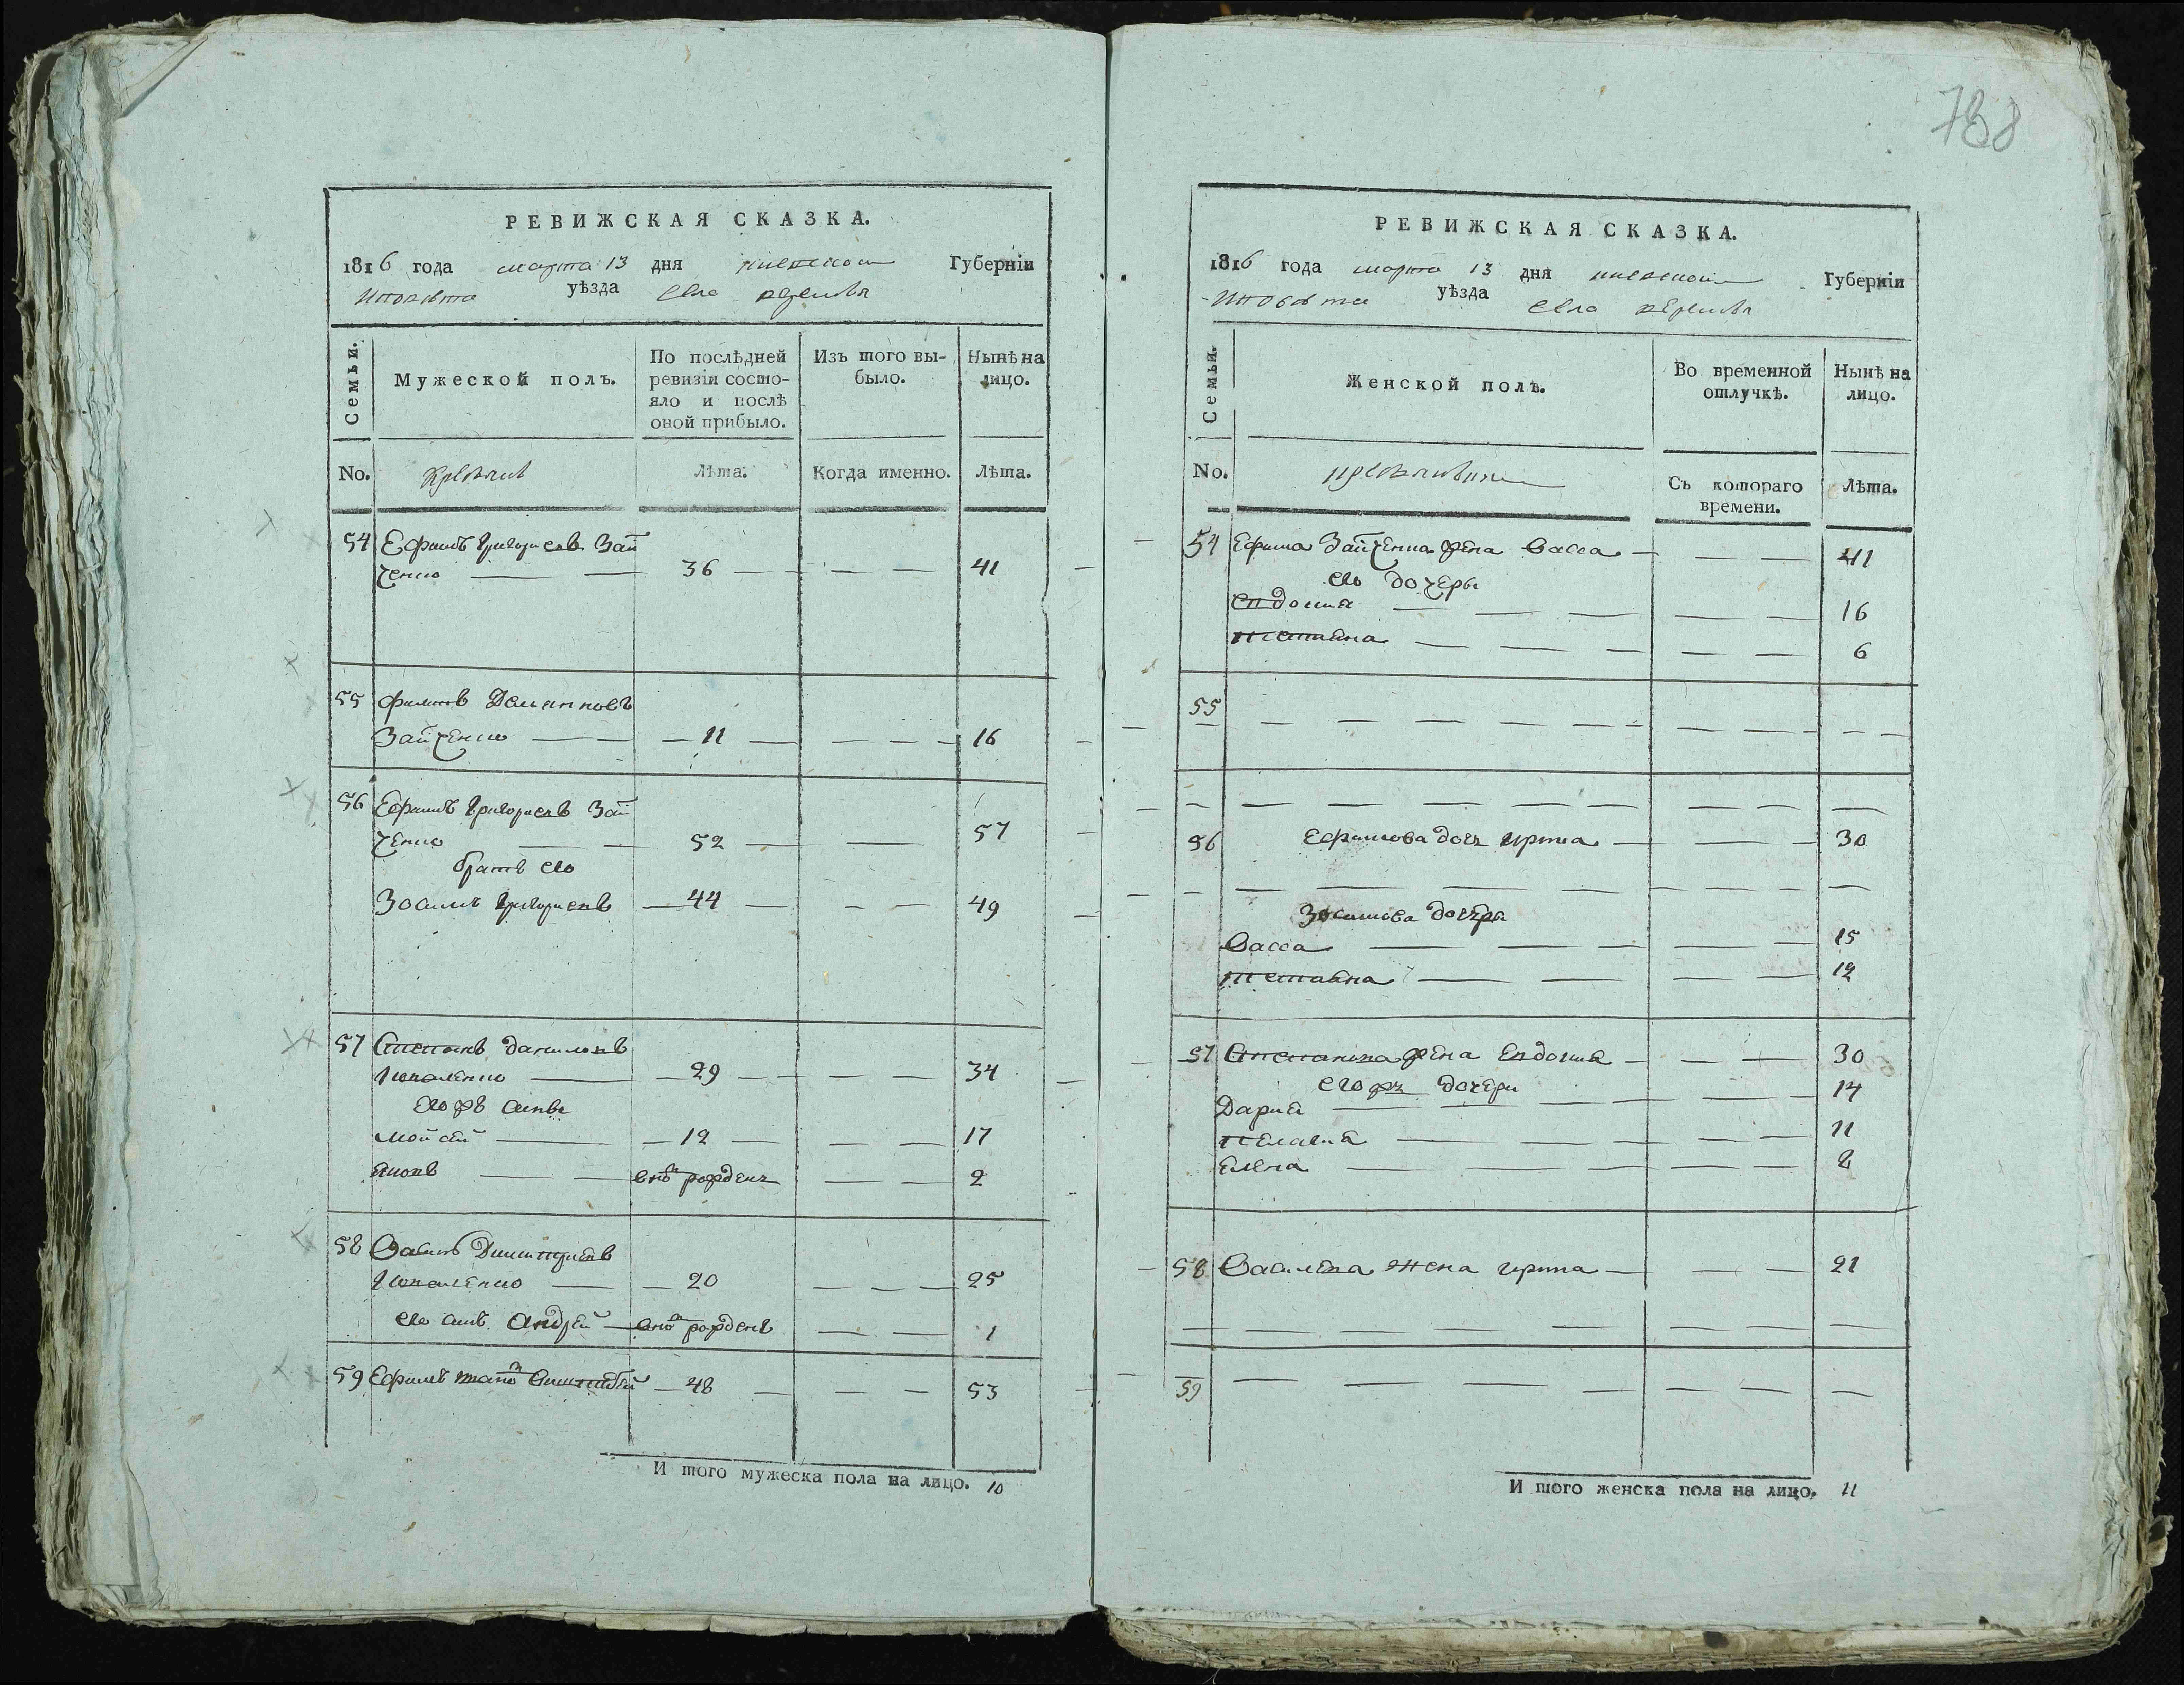 788
РЕВИЖСКАЯ СКАЗКА.
1816 года марта 13 дня киевской Губерніи
уѣзда села
Семьи.
Мужеской полъ.
По послѣдней ревизіи состо-
яло и послѣ
оной прибыло.
Изъ того вы-
было.
Нынѣ на
лицо.
No.
Лѣта.
Когда именно.
Лѣта.
54 Ефимъ Григориевъ Зай
ченко 36 41
55 Филипъ
Зайченко 11 16
56 Ефимъ Григориевъ Зай
ченко 52 57
братъ его
Зосимъ Григориевъ 44 49
57 Степанъ Даниловъ
29 34
его жъ сынъ
Мойсей 12 17
Яковъ вновь рожденъ 2
58 Василь Димитриевъ
20 25
его сынъ Андрей вновь рожденъ 1
59 Ефимъ 48 53
И того мужеска пола на лицо. 10
РЕВИЖСКАЯ СКАЗКА.
1816 года марта 13 дня киевской Губерніи
уѣзда села
Семьи.
Женской полъ.
Во временной
отлучкѣ.
Нынѣ на
лицо.
No.
Съ котораго
времени.
Лѣта.
54 Ефима Зайченка жена Васса 41
его дочеры
Евдокия 16
Тетяна 6
55
56 Ефимова дочь 30
Зосимова дочеры
Васса 15
Тетяна 12
57 Степанова жена Евдокия 30
его жъ дочери
Дария 14
Пелагия 11
Елена 8
58 Василева жена 21
59
И того женска пола на лицо. 11